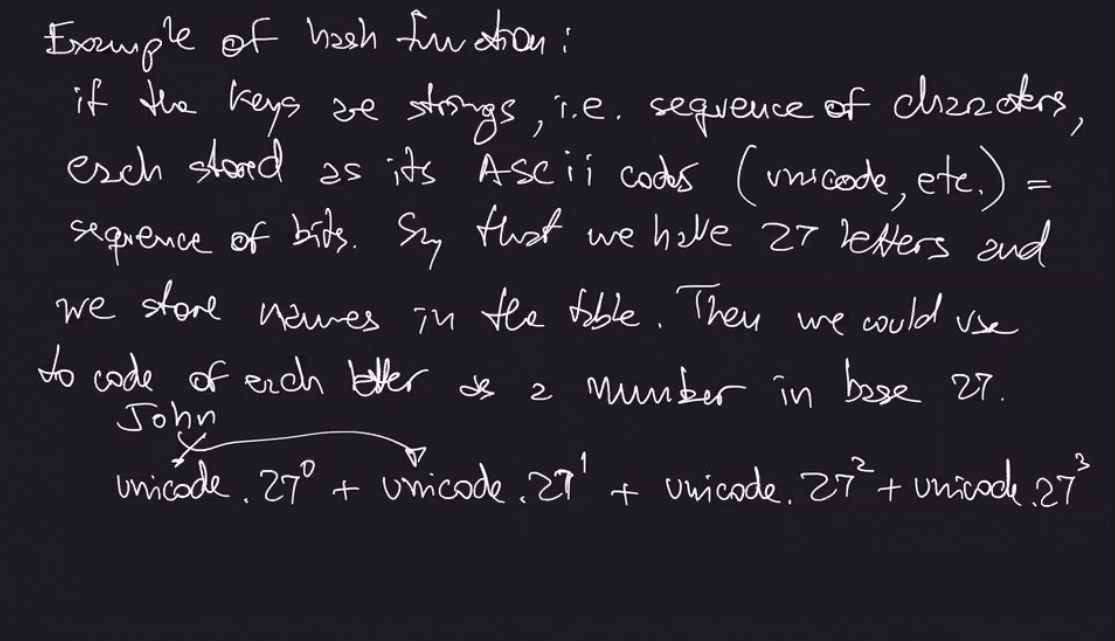 Example of hash function:
if the keys are strings, i.e. sequence of characters,
each stored as its ASCii codes (unicode, etc.) =
sequence of bits. Say that we have 27 letters and
we store names in the table. Then we could use
to code of each letter as a number in base 27.
John
unicode.27⁰ + unicode.27¹ + unicode.27² + unicode.27³